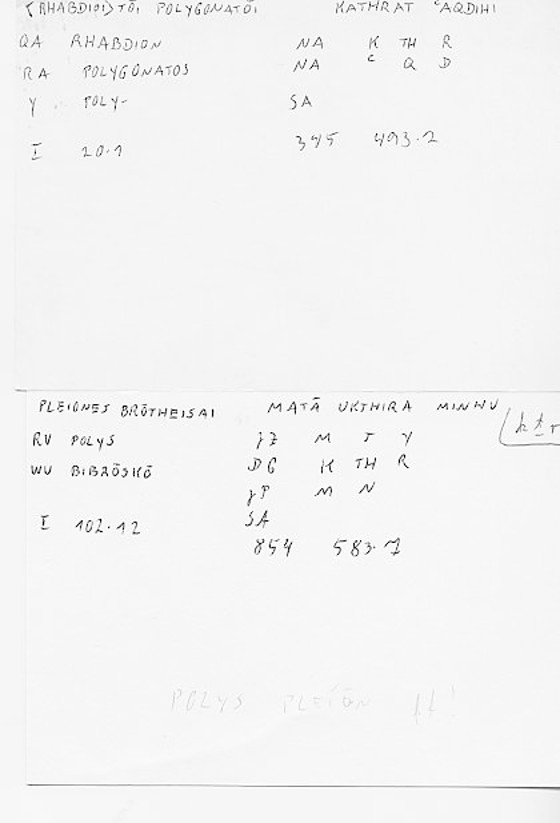 ⟨RHABDIOI⟩ TŌI POLYGONATŌI KATHRAT ʿAQDIHI
QA RHABDION NA K TH R
RA POLYGONATOS NA ʿ Q D
Y POLY- SA
I 20.1 345 493.2
PLEIONES BRŌTHEISAI MATĀ UKTHIRA MINHU
RU POLYS JZ M T Y
WU BIBRŌSKŌ DG K TH R
JP M N
SA
I 102.12
854 583.7
POLYS PLEIŌN !!!